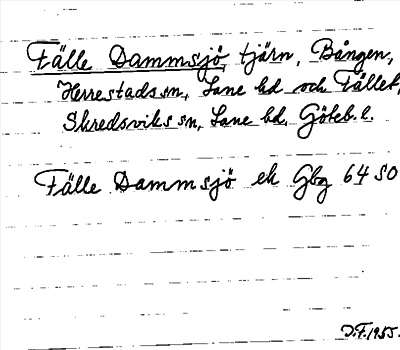 Fälle Dammsjö, tjärn, Bången,
Herrestads sn, Lane hd och Fället,
Skredsviks sn, Lane hd, Göteb. l.
Fälle Dammsjö ek Gbg 64 SO
J.F. 1955.